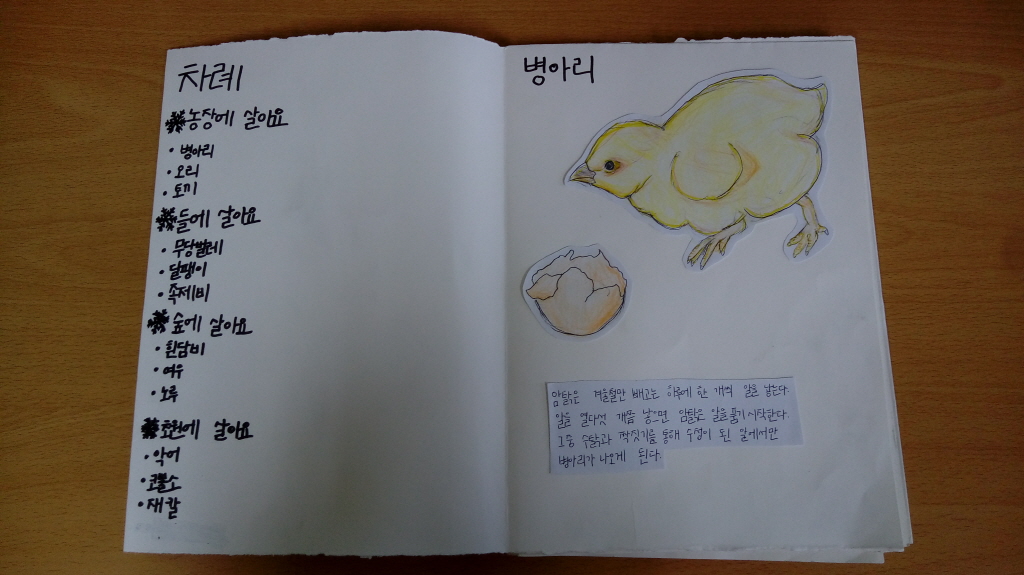 차례
농장에 살아요
• 병아리
• 오리
• 토끼
들에 살아요
• 무당벌레
• 달팽이
• 족제비
숲에 살아요
• 흰담비
• 여우
• 노루
초원에 살아요
• 악어
• 코뿔소
• 재칼
병아리
암탉은 겨울철만 빼고는 하루에 한 개씩 알을 낳는다.
알을 열다섯 개쯤 낳으면 암탉은 알을 품기 시작한다.
그중 수탉과 짝짓기를 통해 수정이 된 알에서만
병아리가 나오게 된다.